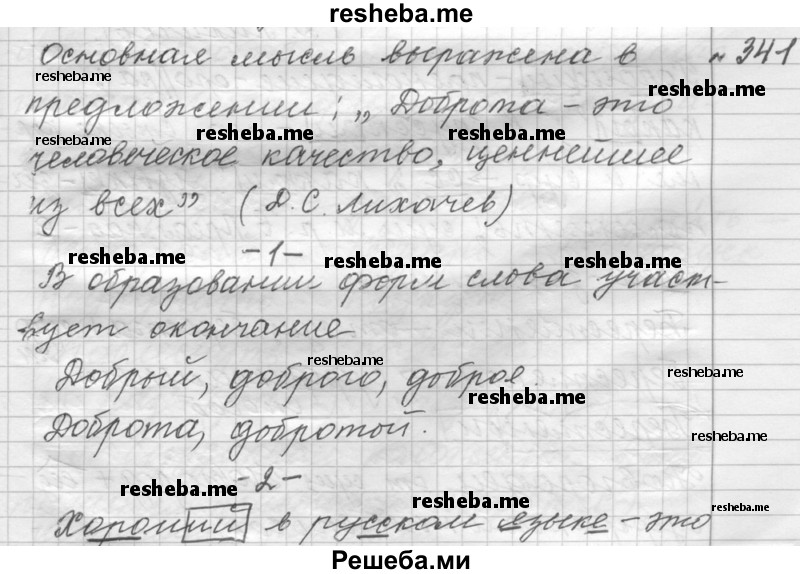 resheba.me
Основная мысль выражена в № 341
resheba.me resheba.me
предложении: „Доброта – это
resheba.me resheba.me resheba.me
человеческое качество, ценнейшее
из всех” (Д.С. Лихачев)
-1-
resheba.me resheba.me resheba.me
В образовании форм слова участ-
вует окончание
resheba.me
Добрый, доброго, доброе.
resheba.me resheba.me
Доброта, добротой.
resheba.me
-2-
resheba.me resheba.me resheba.me
Хороший в русском языке – это
Решеба.ми